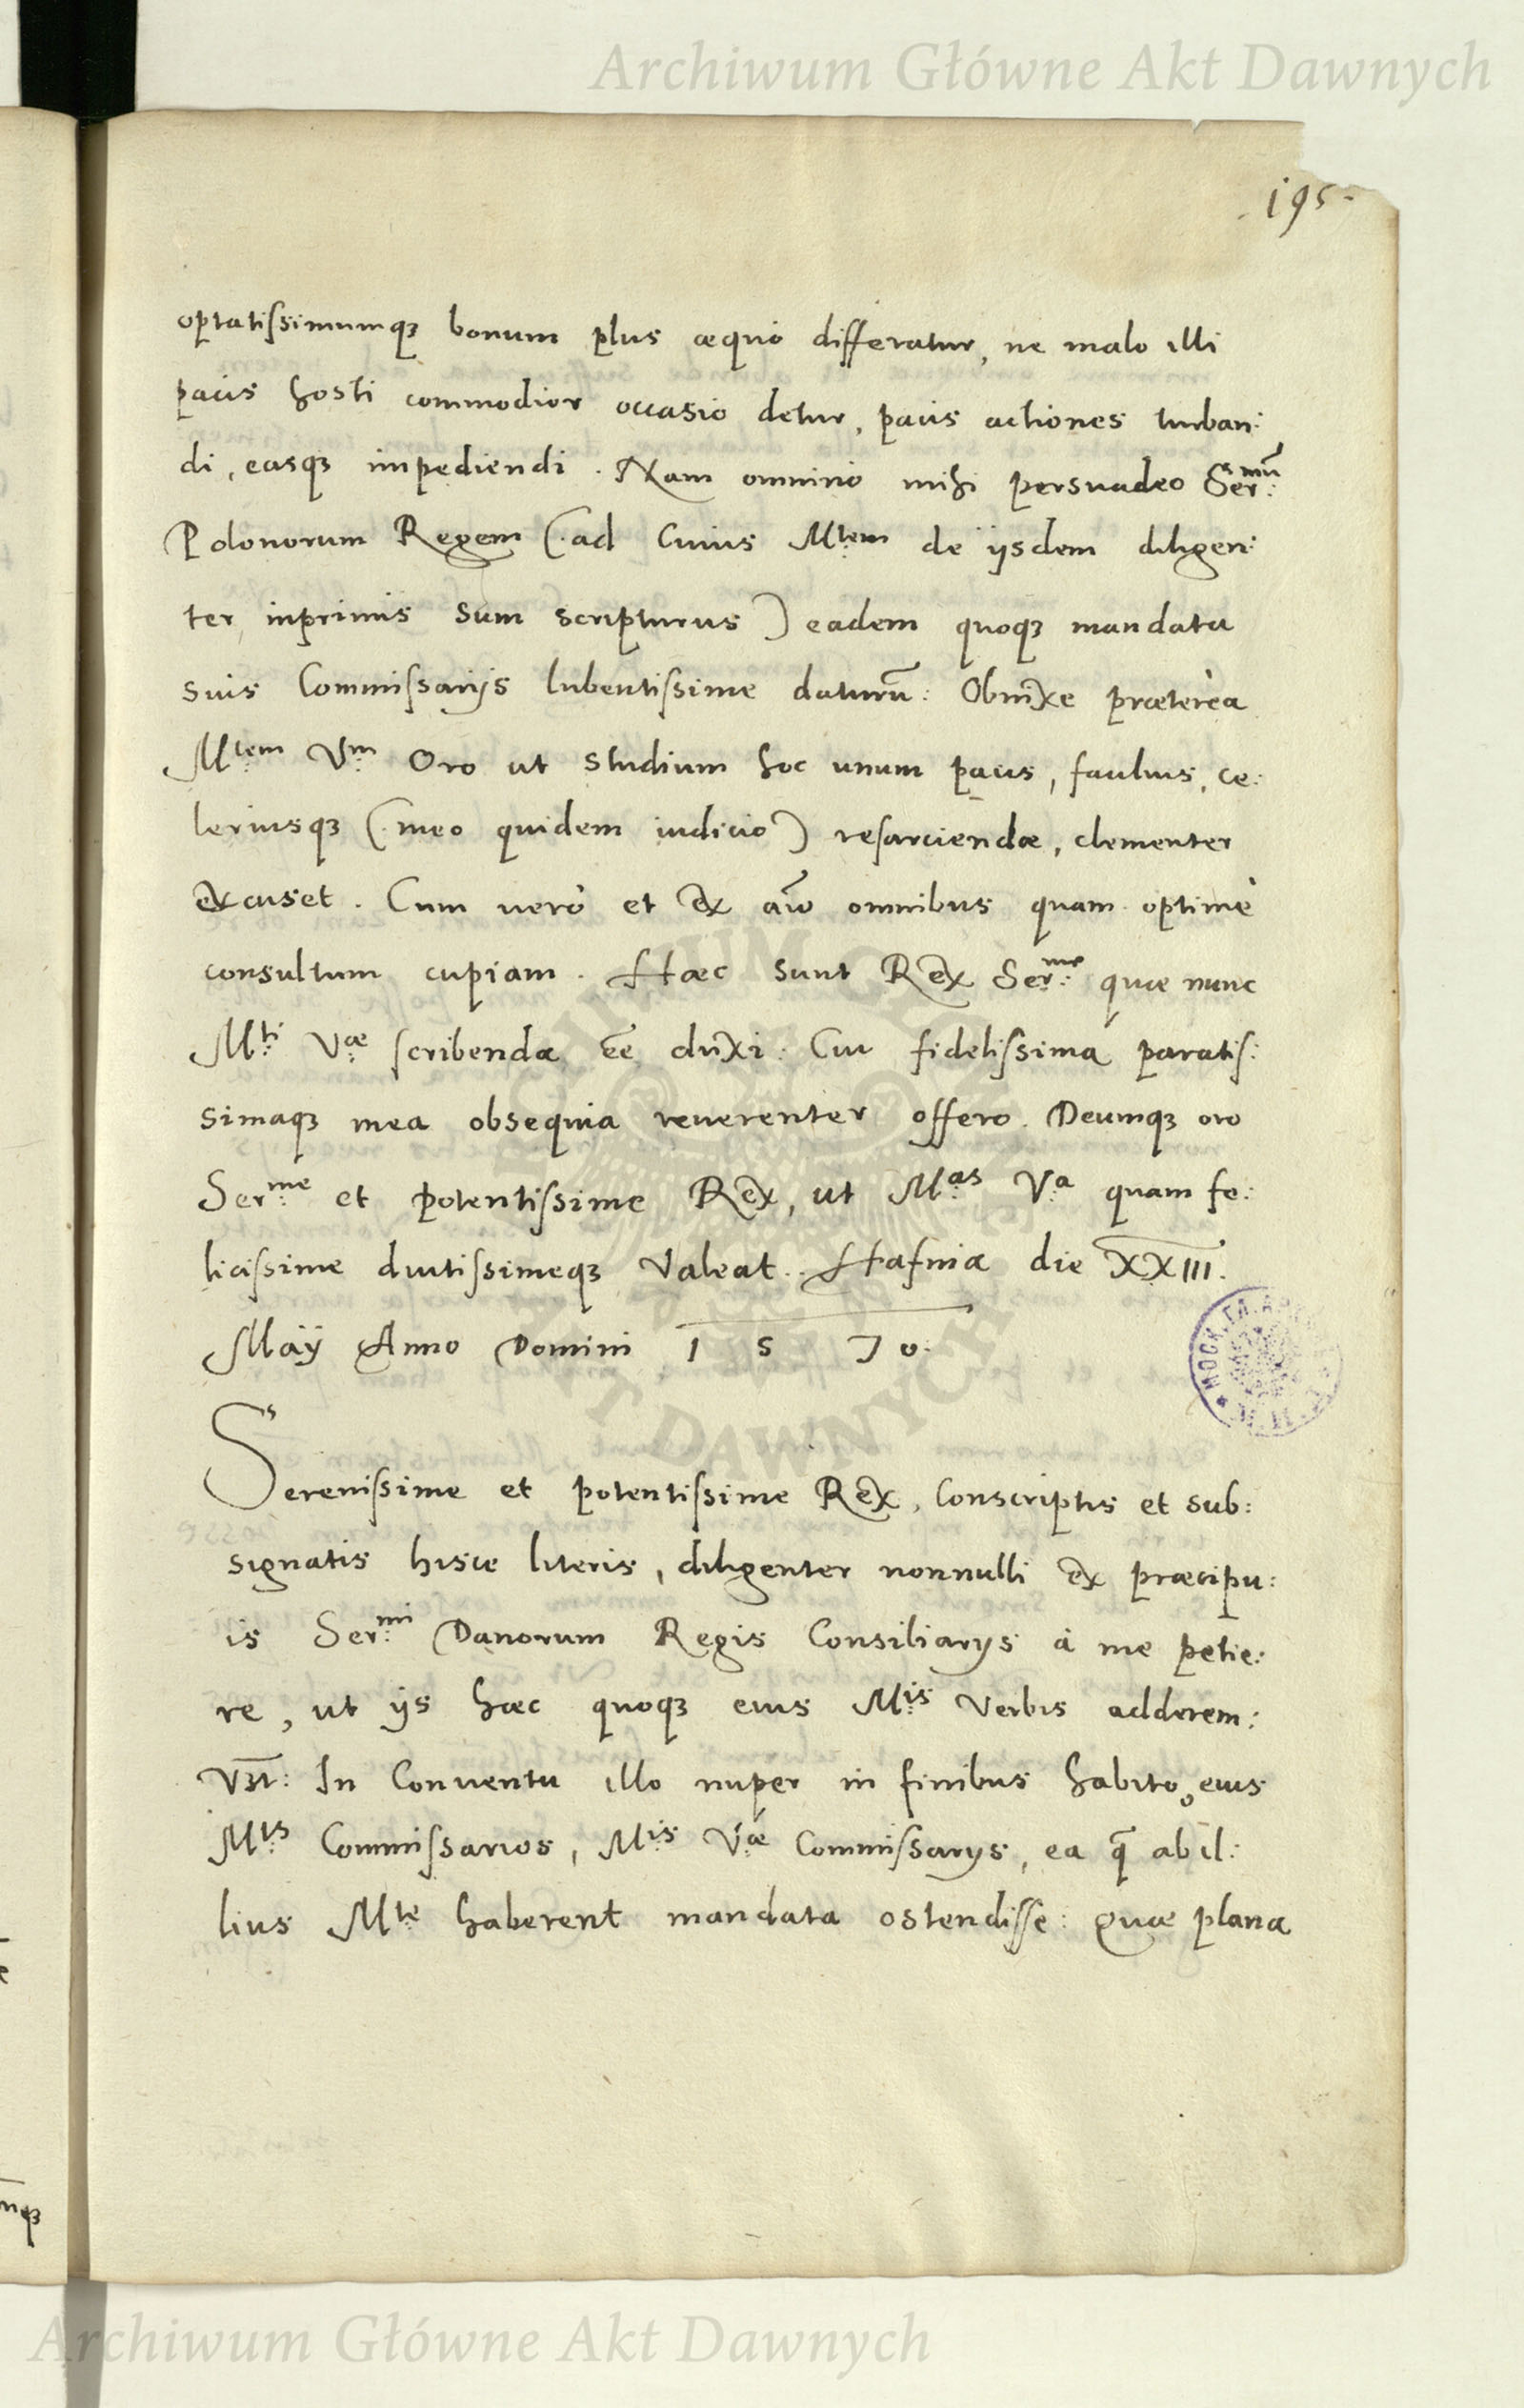 Archiwum Główne Akt Dawnych
195.
optatissimumqȝ bonum plus æquo differatur, ne malo illi
pacis hosti commodior occasio detur, pacis actiones turban:
di, easqȝ impediendi. Nam omnino mihi persuadeo Ser:mū
Polonorum Regem (ad Cuius Mtem de ijsdem diligen:
ter inprimis sum scripturus) eadem quoqȝ mandata
suis Commissarijs lubentissime daturū: Obnixe prætereà
Mtem Vm Oro ut studium hoc unum pacis, facilius, ce:
leriusqȝ (meo quidem iudicio) resarciendæ, clementer
excuset. Cum verò et ex aīo omnibus quam optimè
consultum cupiam. Hæc sunt Rex Ser:me quæ nunc
Mti Væ scribenda eē duxi: Cui fidelissima paratis:
simaqȝ mea obsequia reuerenter offero. Deumqȝ oro
Ser:me et potentissime Rex, ut Mas Va quam fe:
licissime diutissimeqȝ Valeat. Hafnia die XXIII.
Maÿ Anno Domini 1 5 7 0.
Serenissime et potentissime Rex, Conscriptis et sub:
signatis hisce literis, diligenter nonnulli ex præcipu:
is Ser:mi Danorum Regis Consiliarijs à me petie:
re, ut ijs hæc quoqȝ eius Mis Verbis adderem:
In Conuentu illo nuper in finibus habito, eius
Mtis Commissarios, Mtis Væ Commissarijs, ea q̄ ab il:
lius Mte haberent mandata ostendisse: Quæ plana
Archiwum Główne Akt Dawnych